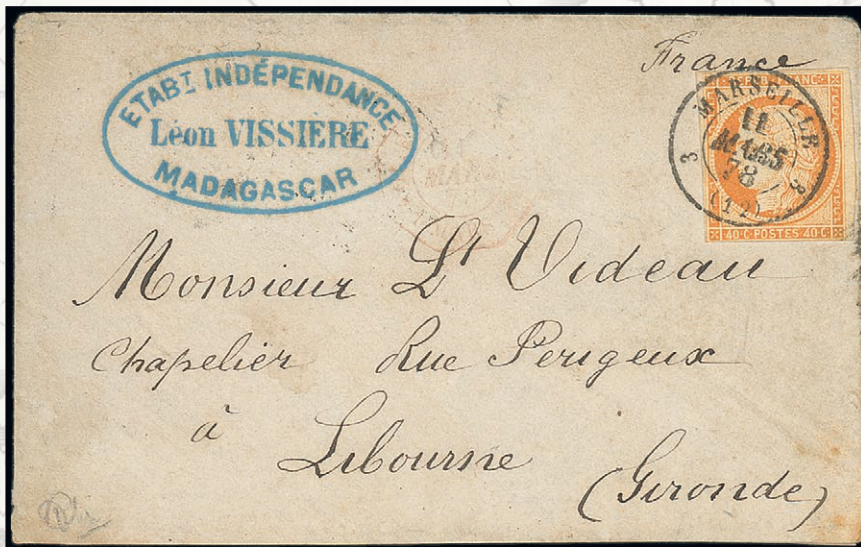 France
ETABT INDÉPENDANCE
Léon VISSIÈRE
MADAGASCAR
RÉPUB. FRANC.
MARSEILLE
11
MARS
78
3
40·C·POSTES 40·C
MARS
Monsieur Lt Videau
Chapelier Rue Perigeux
à
Libourne
(Gironde)